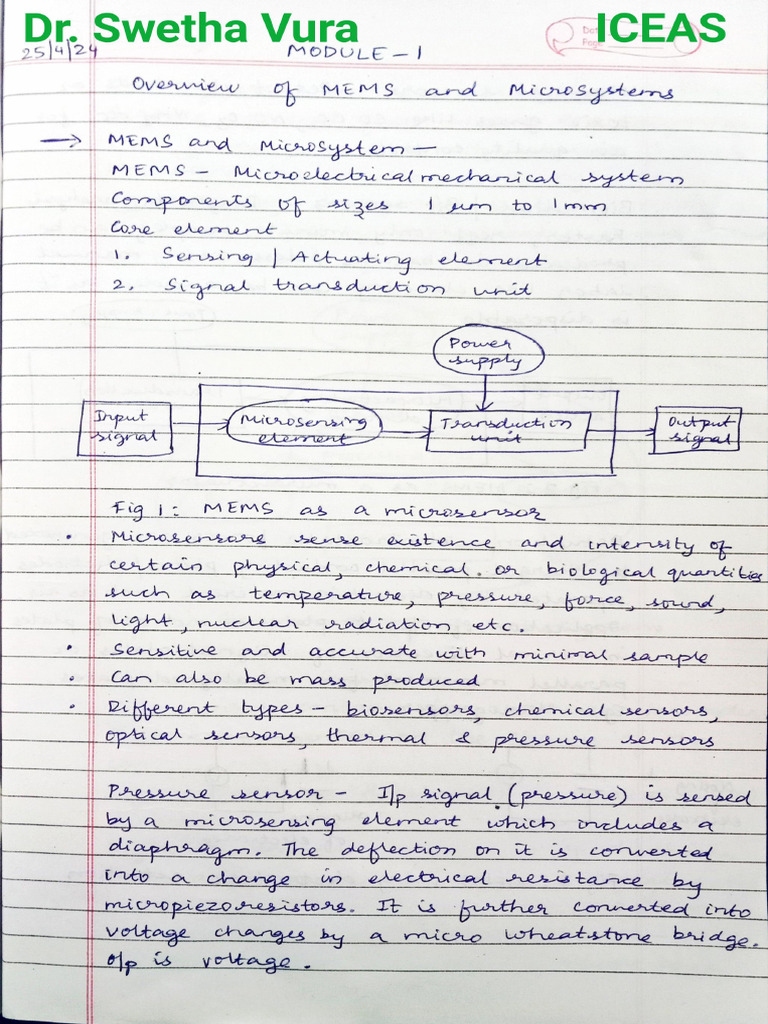 Dr. Swetha Vura ICEAS
25/4/24 MODULE-1
Overview of MEMS and Microsystems
→ MEMS and Microsystem —
MEMS - Microelectricalmechanical system
Components of sizes 1 μm to 1mm
Core element
1. Sensing / Actuating element
2. Signal transduction unit
Power
supply
Input
signal
Microsensing
element
Transduction
unit
Output
signal
Fig 1: MEMS as a microsensor
• Microsensors sense existence and intensity of
certain physical, chemical or biological quantities
such as temperature, pressure, force, sound,
light, nuclear radiation etc.
• Sensitive and accurate with minimal sample
• Can also be mass produced
• Different types - biosensors, chemical sensors,
optical sensors, thermal & pressure sensors
Pressure sensor - I/p signal (pressure) is sensed
by a microsensing element which includes a
diaphragm. The deflection on it is converted
into a change in electrical resistance by
micropiezoresistors. It is further converted into
voltage changes by a micro wheatstone bridge.
O/p is voltage.